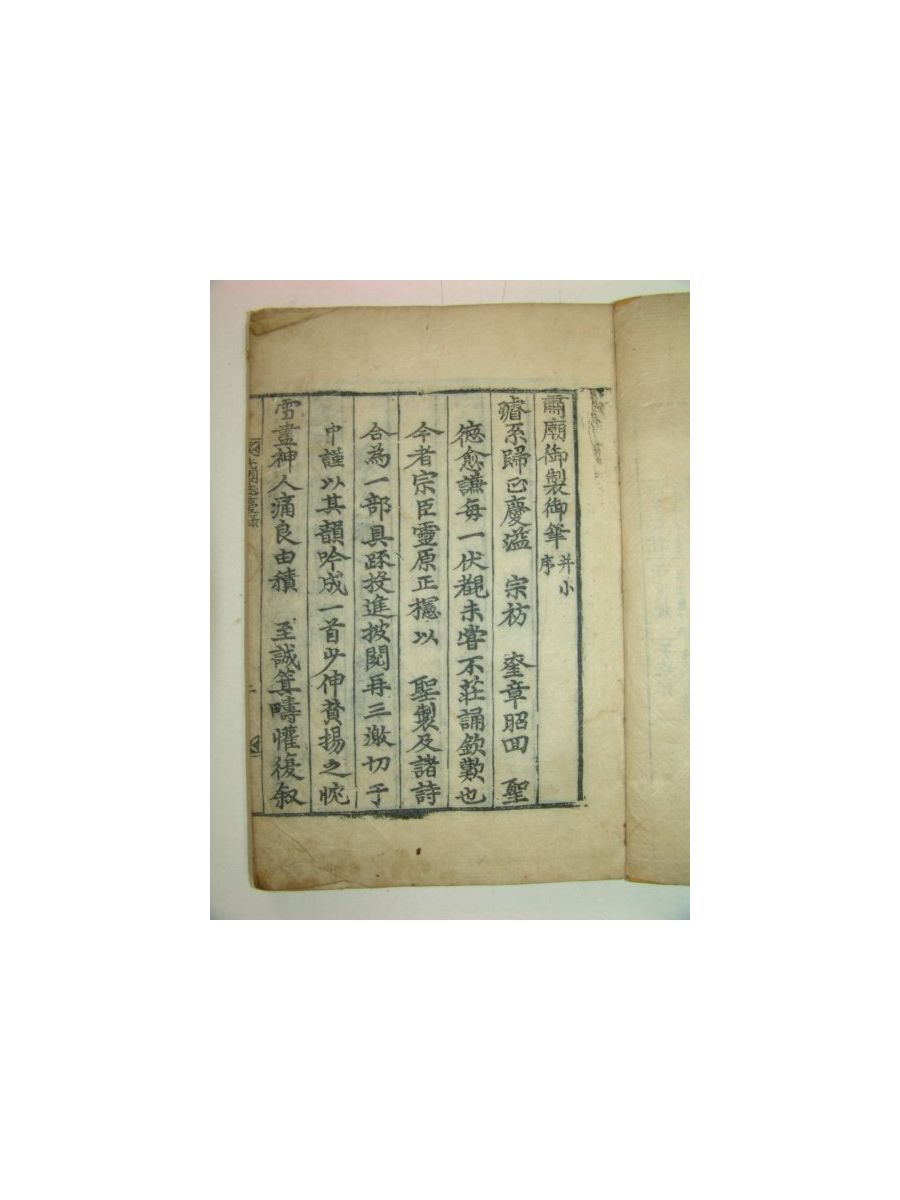 肅廟御製御筆 并小序
璿系歸正慶溢 宗祊 奎章昭回 聖
德愈謙每一伏覩未嘗不莊誦欽歎也
今者宗臣靈原正櫶以 聖製及諸詩
合為一部具疏投進披閱再三激切于
中謹以其韻吟成一首少伸賛揚之忱
雪盡神人痛良由積 至誠箕疇懽復叙